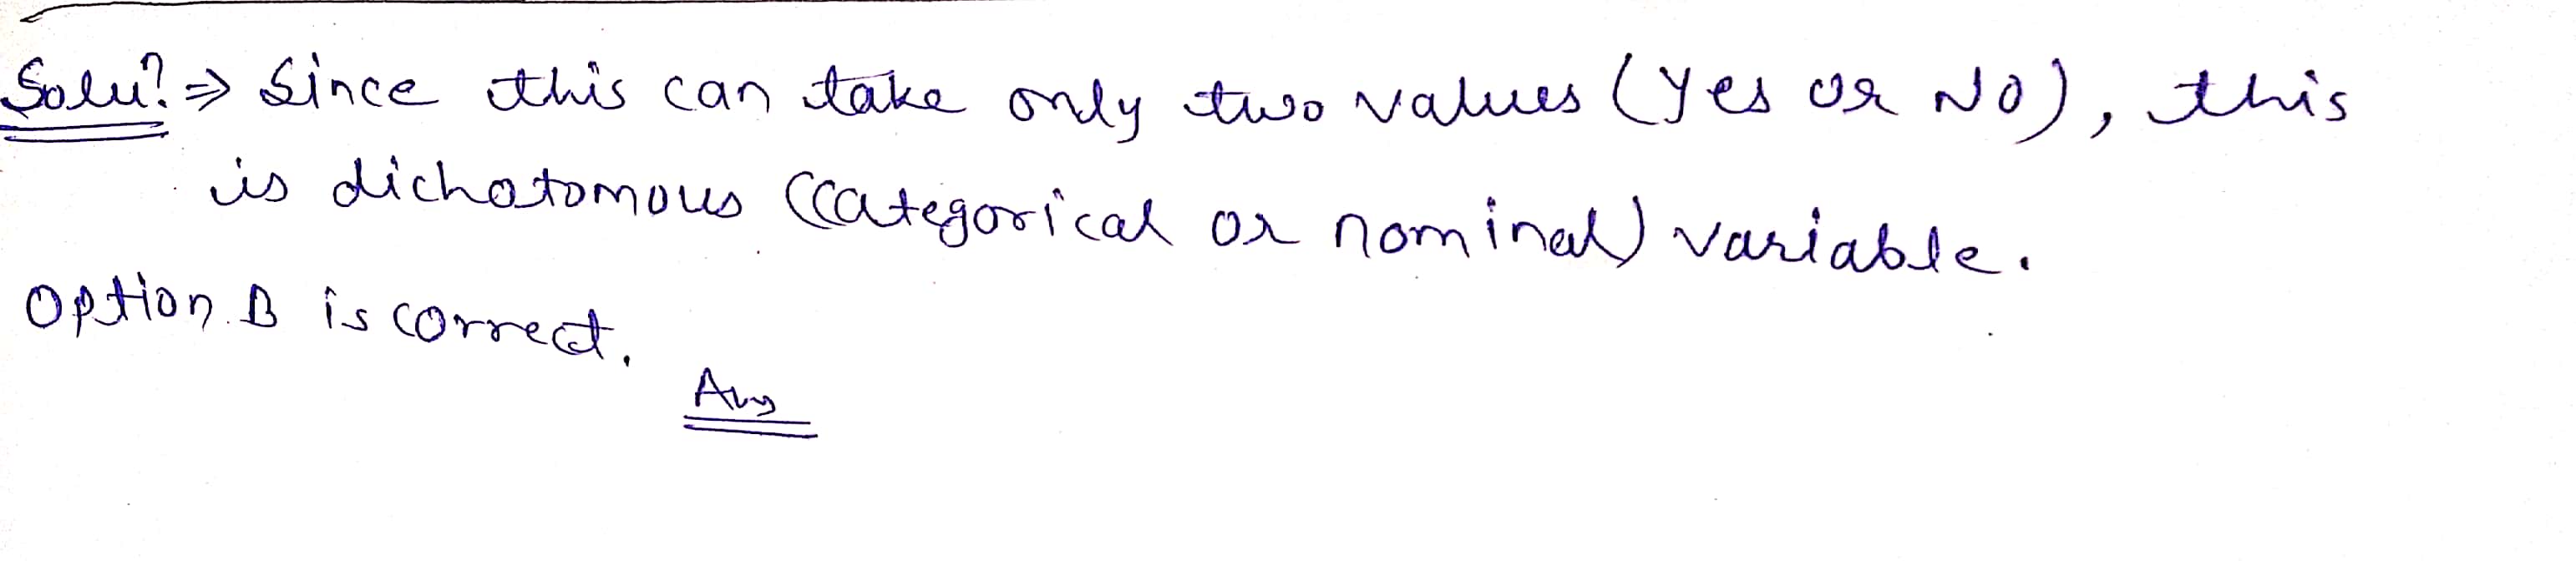 Solun ⇒ Since this can take only two values (Yes or No), this
is dichotomous (categorical or nominal) variable.
Option B is correct.
Ans